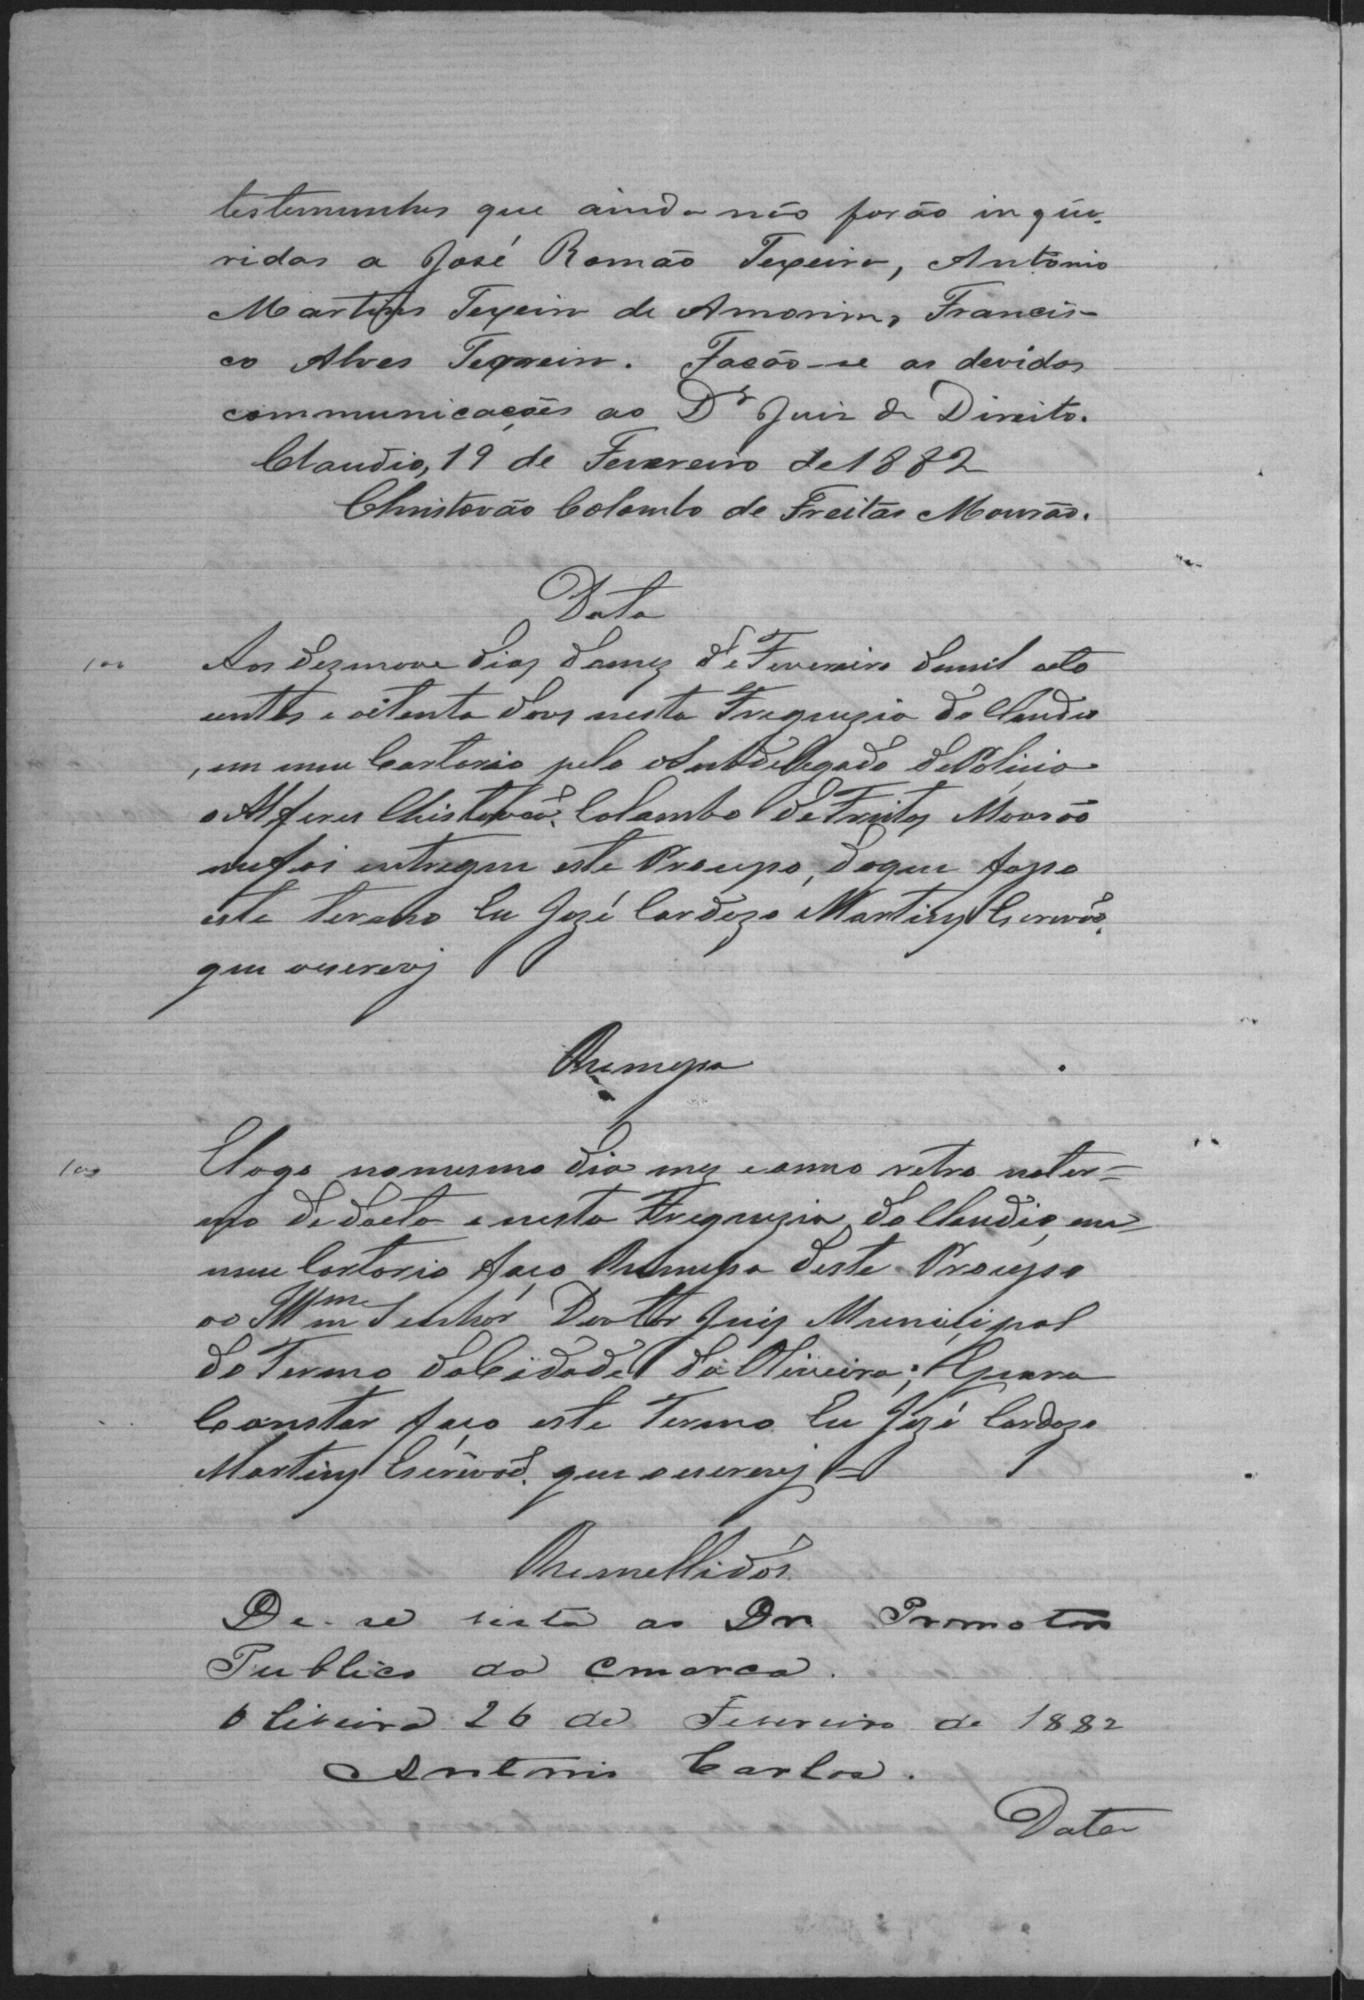 testemunhas que ainda não forão inqui-
ridas a José Romão Texeira, Antonio
Martins Texeira de Amorim, Francis-
co Alves Texeira. Fação-se as devidas
communicações ao Dr Juiz de Direito.
Claudio, 19 de Fevereiro de 1882
Christovão Colombo de Freitas Mourão.
Data
100
Aos dezenove dias domez de Fevereiro demil oito
centos e oitenta dous nesta Freguezia do Claudio
, em meu Cartorio pelo o Subdelegado de Policia
o Alferes Christovão Colombo de Freitas Mourão
mefoi entregue este Processo, doque fasso
este termo Eu Jozé Cardozo Martins Escrivão.
que o escrevj
Remessa
100
Elogo nomesmo dia mez eanno retro noter=
mo de data e nesta Freguezia do Claudio, em
meu Cartorio faço Remessa deste Processo
ao Illmm Senhor Doutor Juiz Municipal
do Termo daCidade da Oliveira; Epara
Constar faço este Termo Eu Jozé Cardozo
Martins Escrivão. que o escrevj =
Remettidos
De-se vista ao Dr Promotor
Publico da Cmarca.
Oliveira 26 de Fevereiro de 1882
Antonio Carlos.
Data